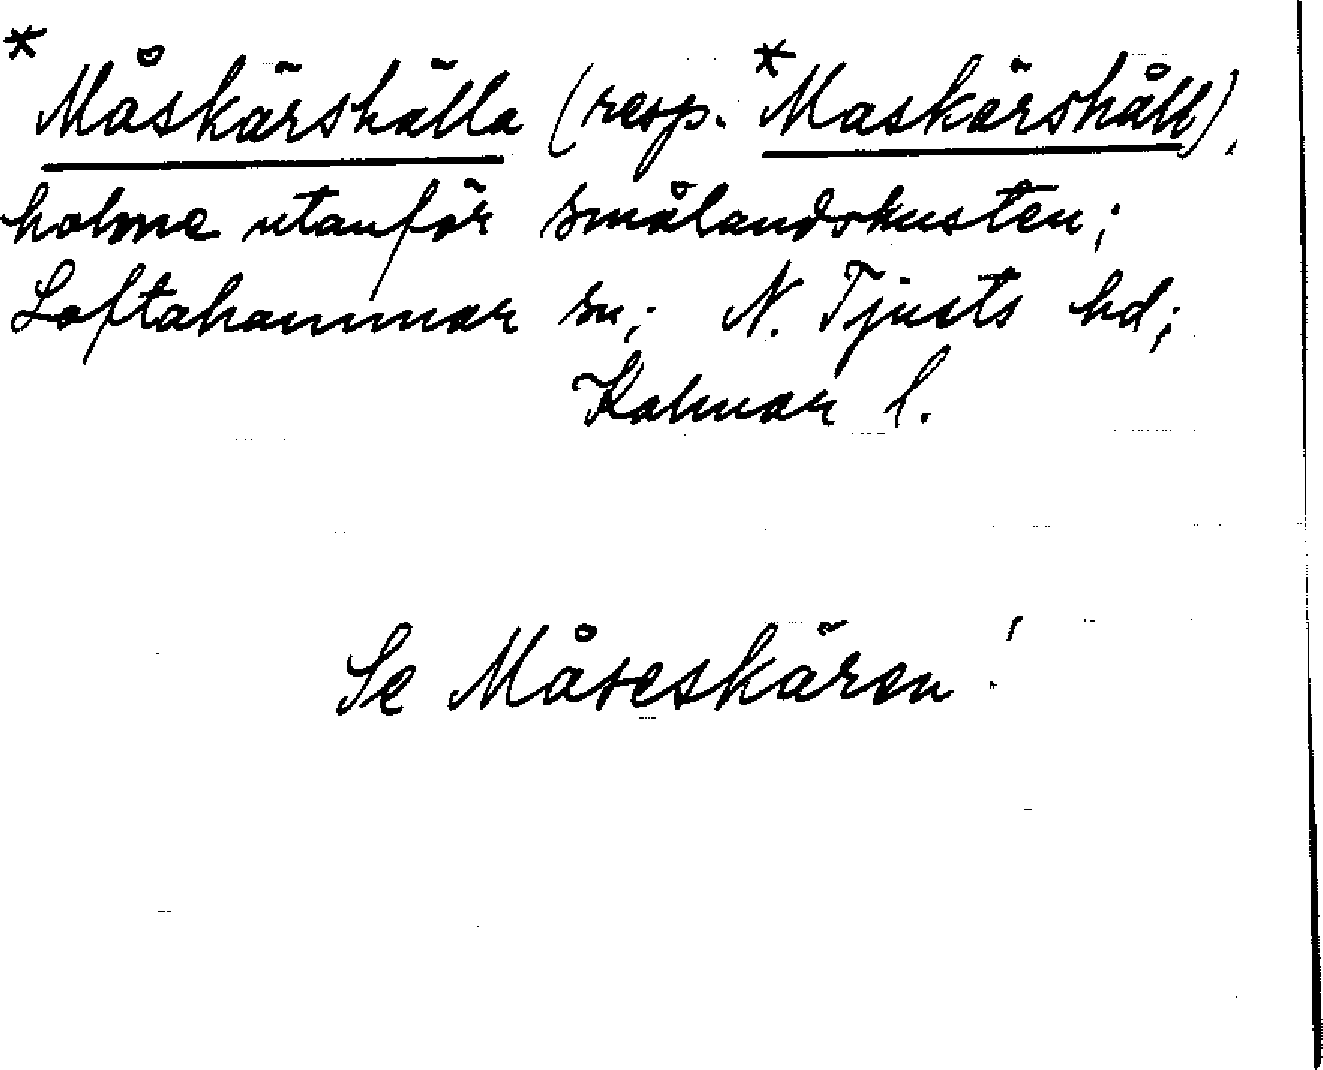 *Måskärshälla (resp. *Maskärshåll),
holme utanför smålandskusten;
Loftahammar sn; N. Tjusts hd;
Kalmar l.
Se Måseskären!